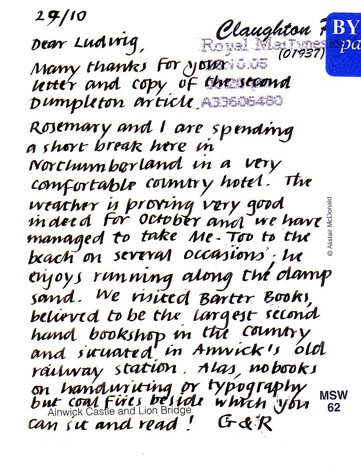 24/10
Claughton
BY
(01937)
pa
Dear Ludwig,
Royal Mail Tyneside
Many thanks for your
.10.05
letter and copy of the second
Dumpleton article.
A33606480
Rosemary and I are spending
a short break here in
Northumberland in a very
comfortable country hotel. The
weather is proving very good
indeed for October and we have
managed to take Me-Too to the
beach on several occasions; he
enjoys running along the damp
sand. We visited Barter Books,
believed to be the largest second
hand bookshop in the country
and situated in Anwick's old
railway station. Alas, no books
on handwriting or typography
but coal fires beside which you
can sit and read! G & R
Alnwick Castle and Lion Bridge
MSW
62
© Alistair McDonald